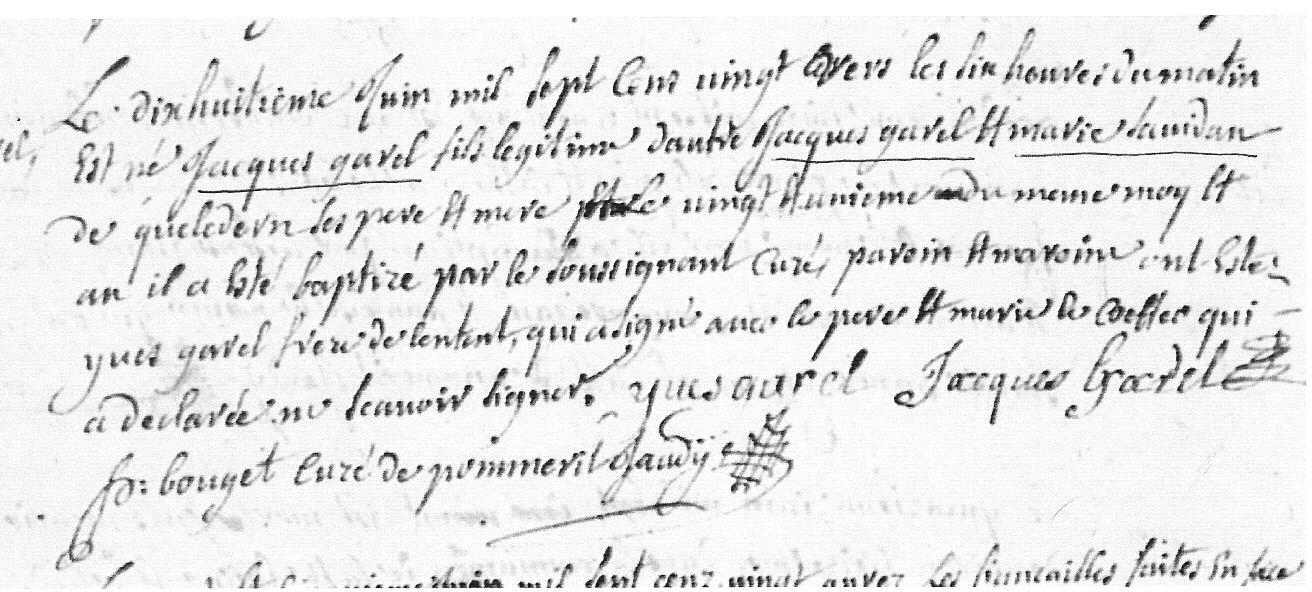 Le dixhuitieme Juin mil sept cens uingt vers les six heures du matin
Est né Jacques garel fils legitime dautre Jacques garel Et marie sauidan
De queledern ses pere Et mere le uingt Et unieme du meme moy Et
an il a Esté baptizé par le soussignant curé, paroin Et maroine ont Esté
yues garel frere de lenfent, qui a signé auec le pere Et marie le coeffec qui
a declarée ne scauoir signer. yues garel Jacques Garel
fr: bouget curé de pommerit Jaudy
mil sept cens uingt apres les fiancailles faites En face